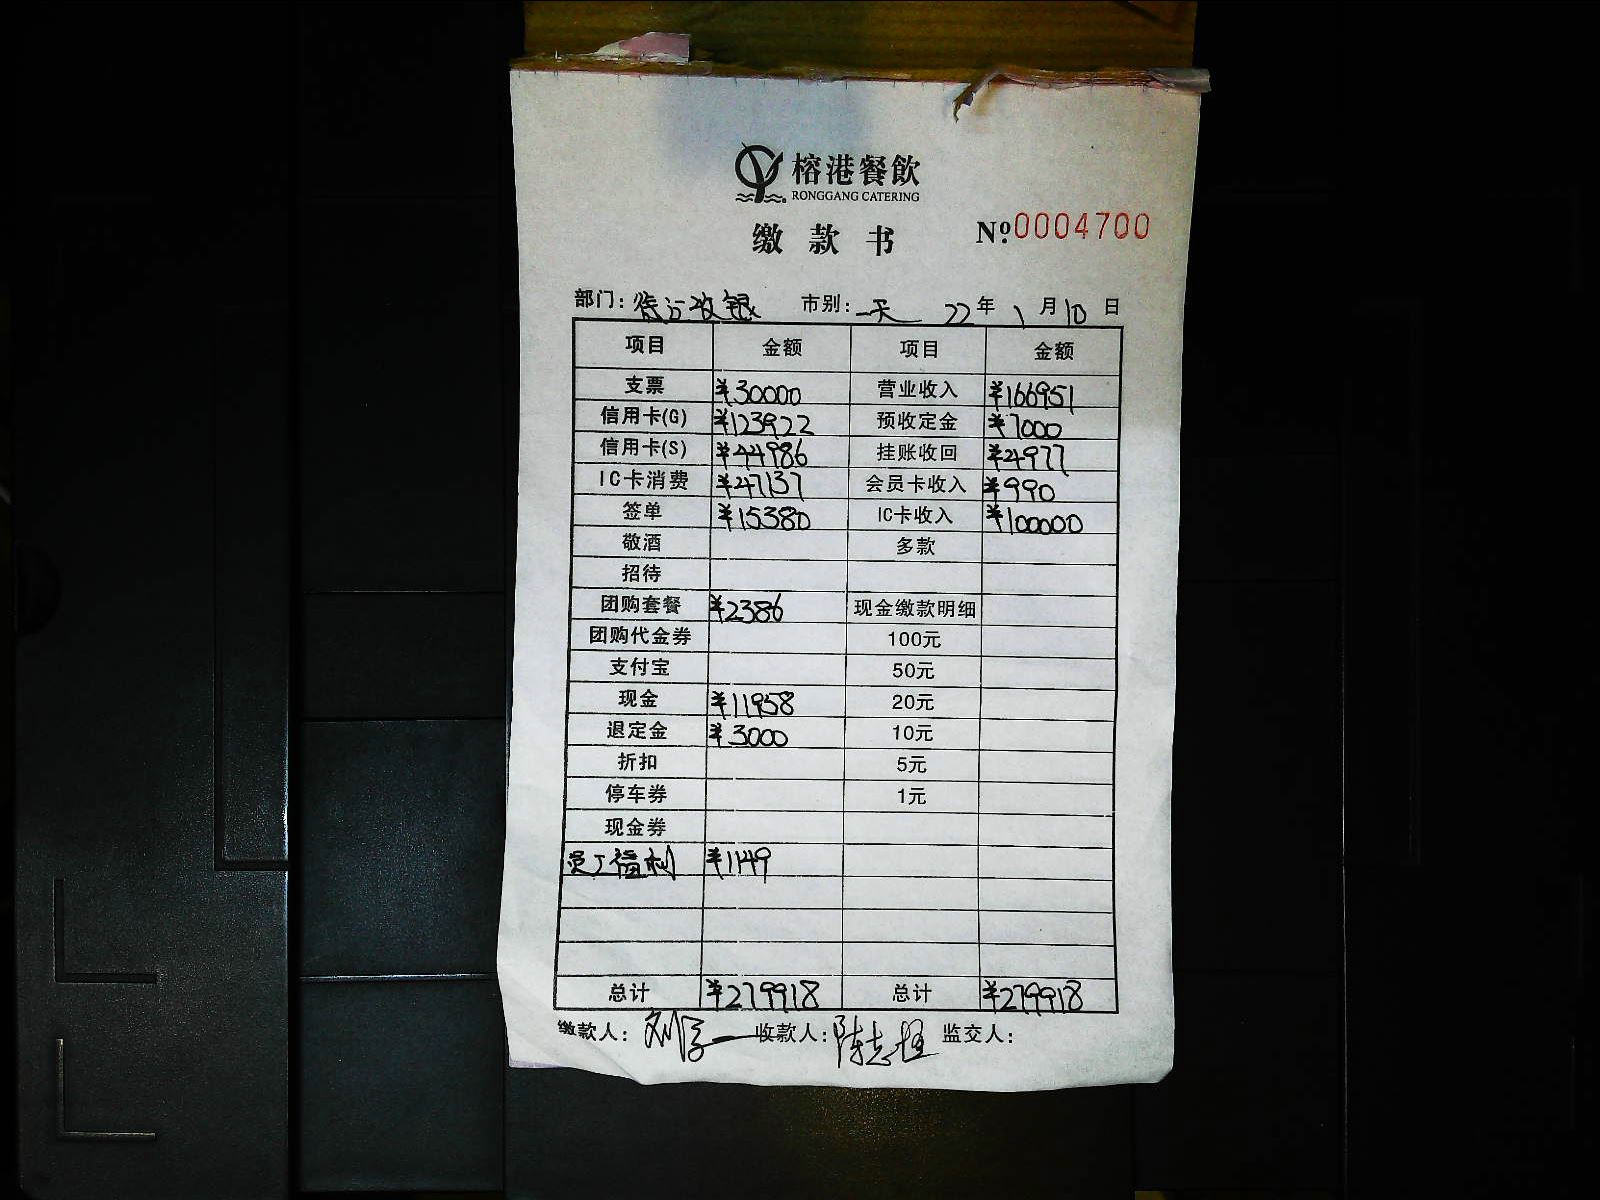 榕港餐飲
RONGGANG CATERING
缴款书
Nº:0004700
部门: 收银 市别: 一天 22年1月10日
项目 金额 项目 金额
支票 ¥30000 营业收入 ¥166951
信用卡(G) ¥123922 预收定金 ¥7000
信用卡(S) ¥44986 挂账收回 ¥4977
IC卡消费 ¥47137 会员卡收入 ¥990
签单 ¥15380 IC卡收入 ¥100000
敬酒 多款
招待
团购套餐 ¥2386 现金缴款明细
团购代金券 100元
支付宝 50元
现金 ¥11958 20元
退定金 ¥3000 10元
折扣 5元
停车券 1元
现金券
员工福利 ¥1149
总计 ¥279918 总计 ¥279918
缴款人: 刘 收款人: 陈志 监交人: